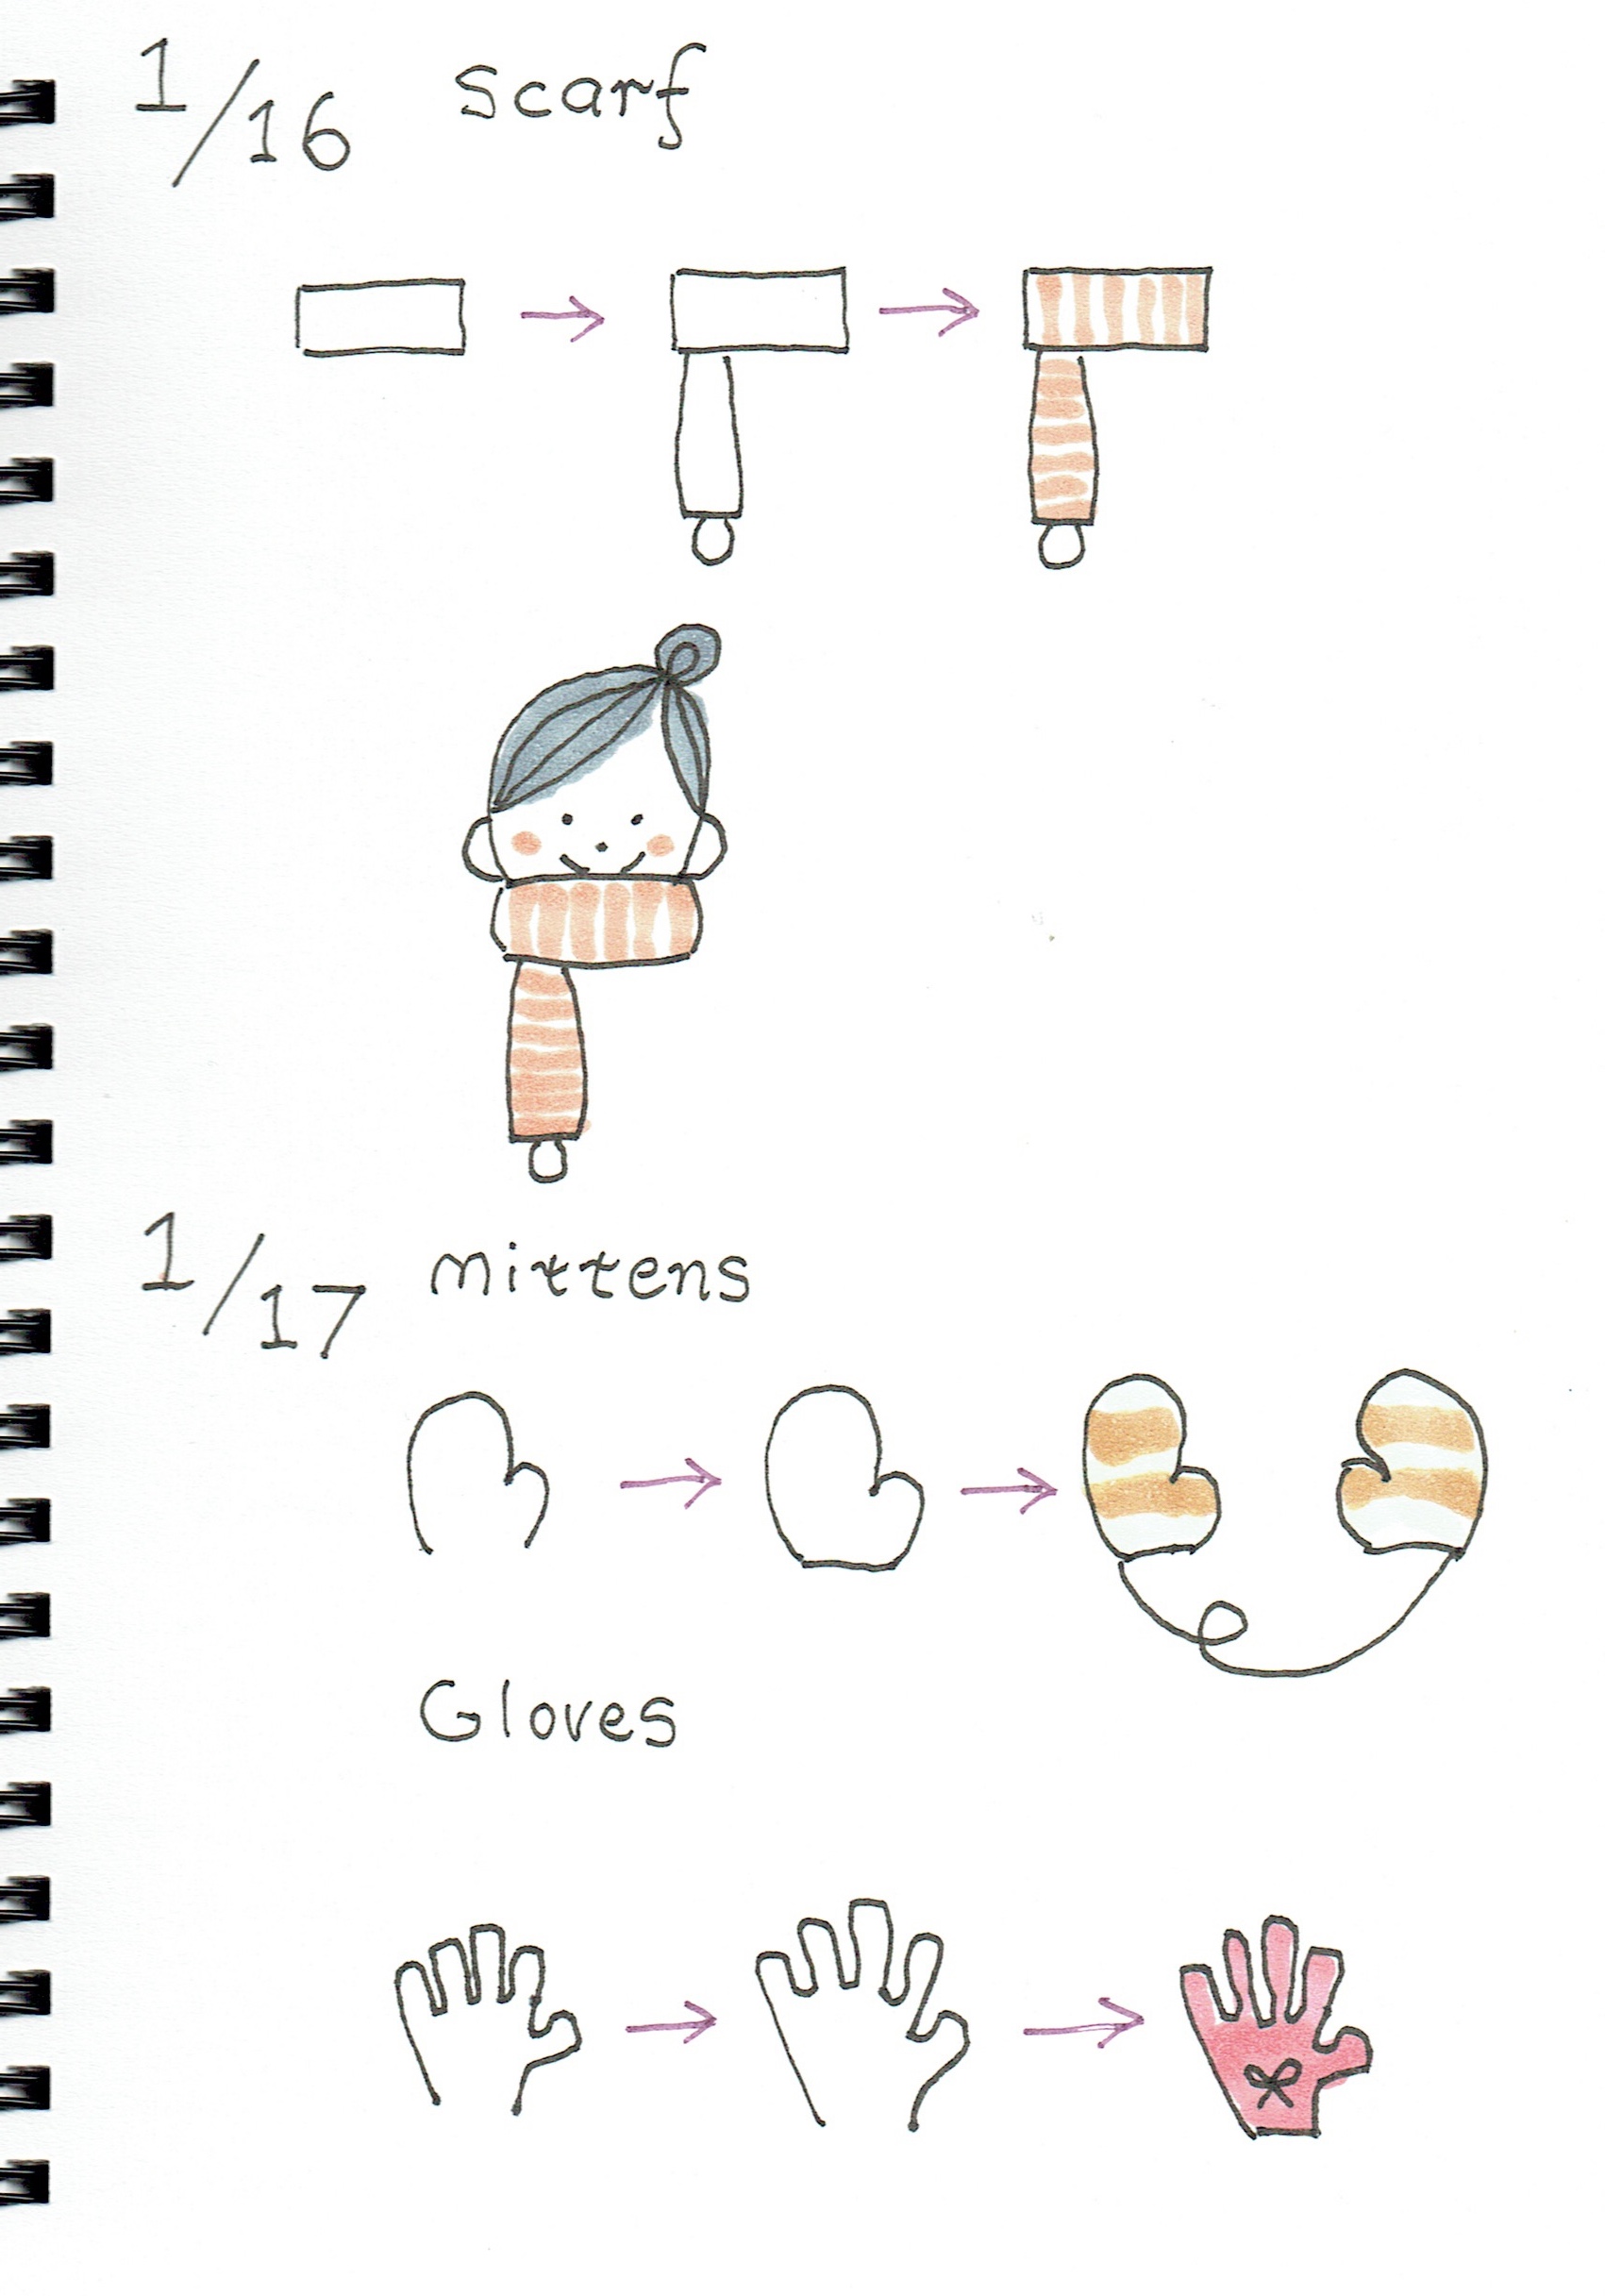 1/16 scarf
1/17 mittens
Gloves